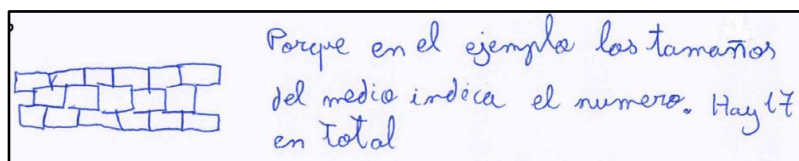 Porque en el ejemplo los tamaños
del medio indica el numero. Hay 17
en total